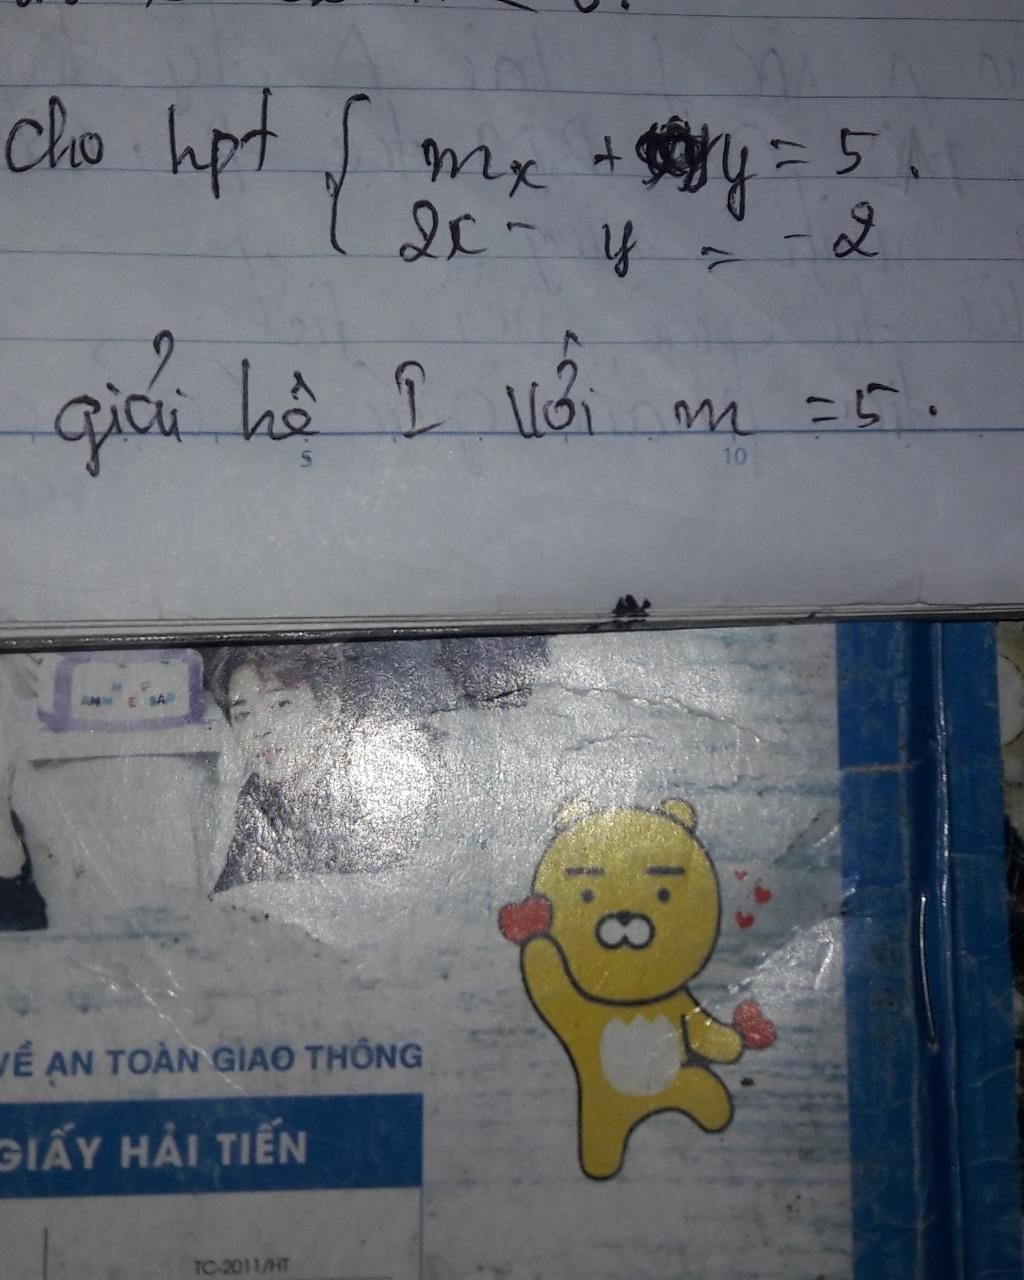 Cho hpt { mx + y = 5 .
2x - y = -2
giải hệ I với m = 5 .
5 10
VỀ AN TOÀN GIAO THÔNG
GIẤY HẢI TIẾN
TC-2011/HT